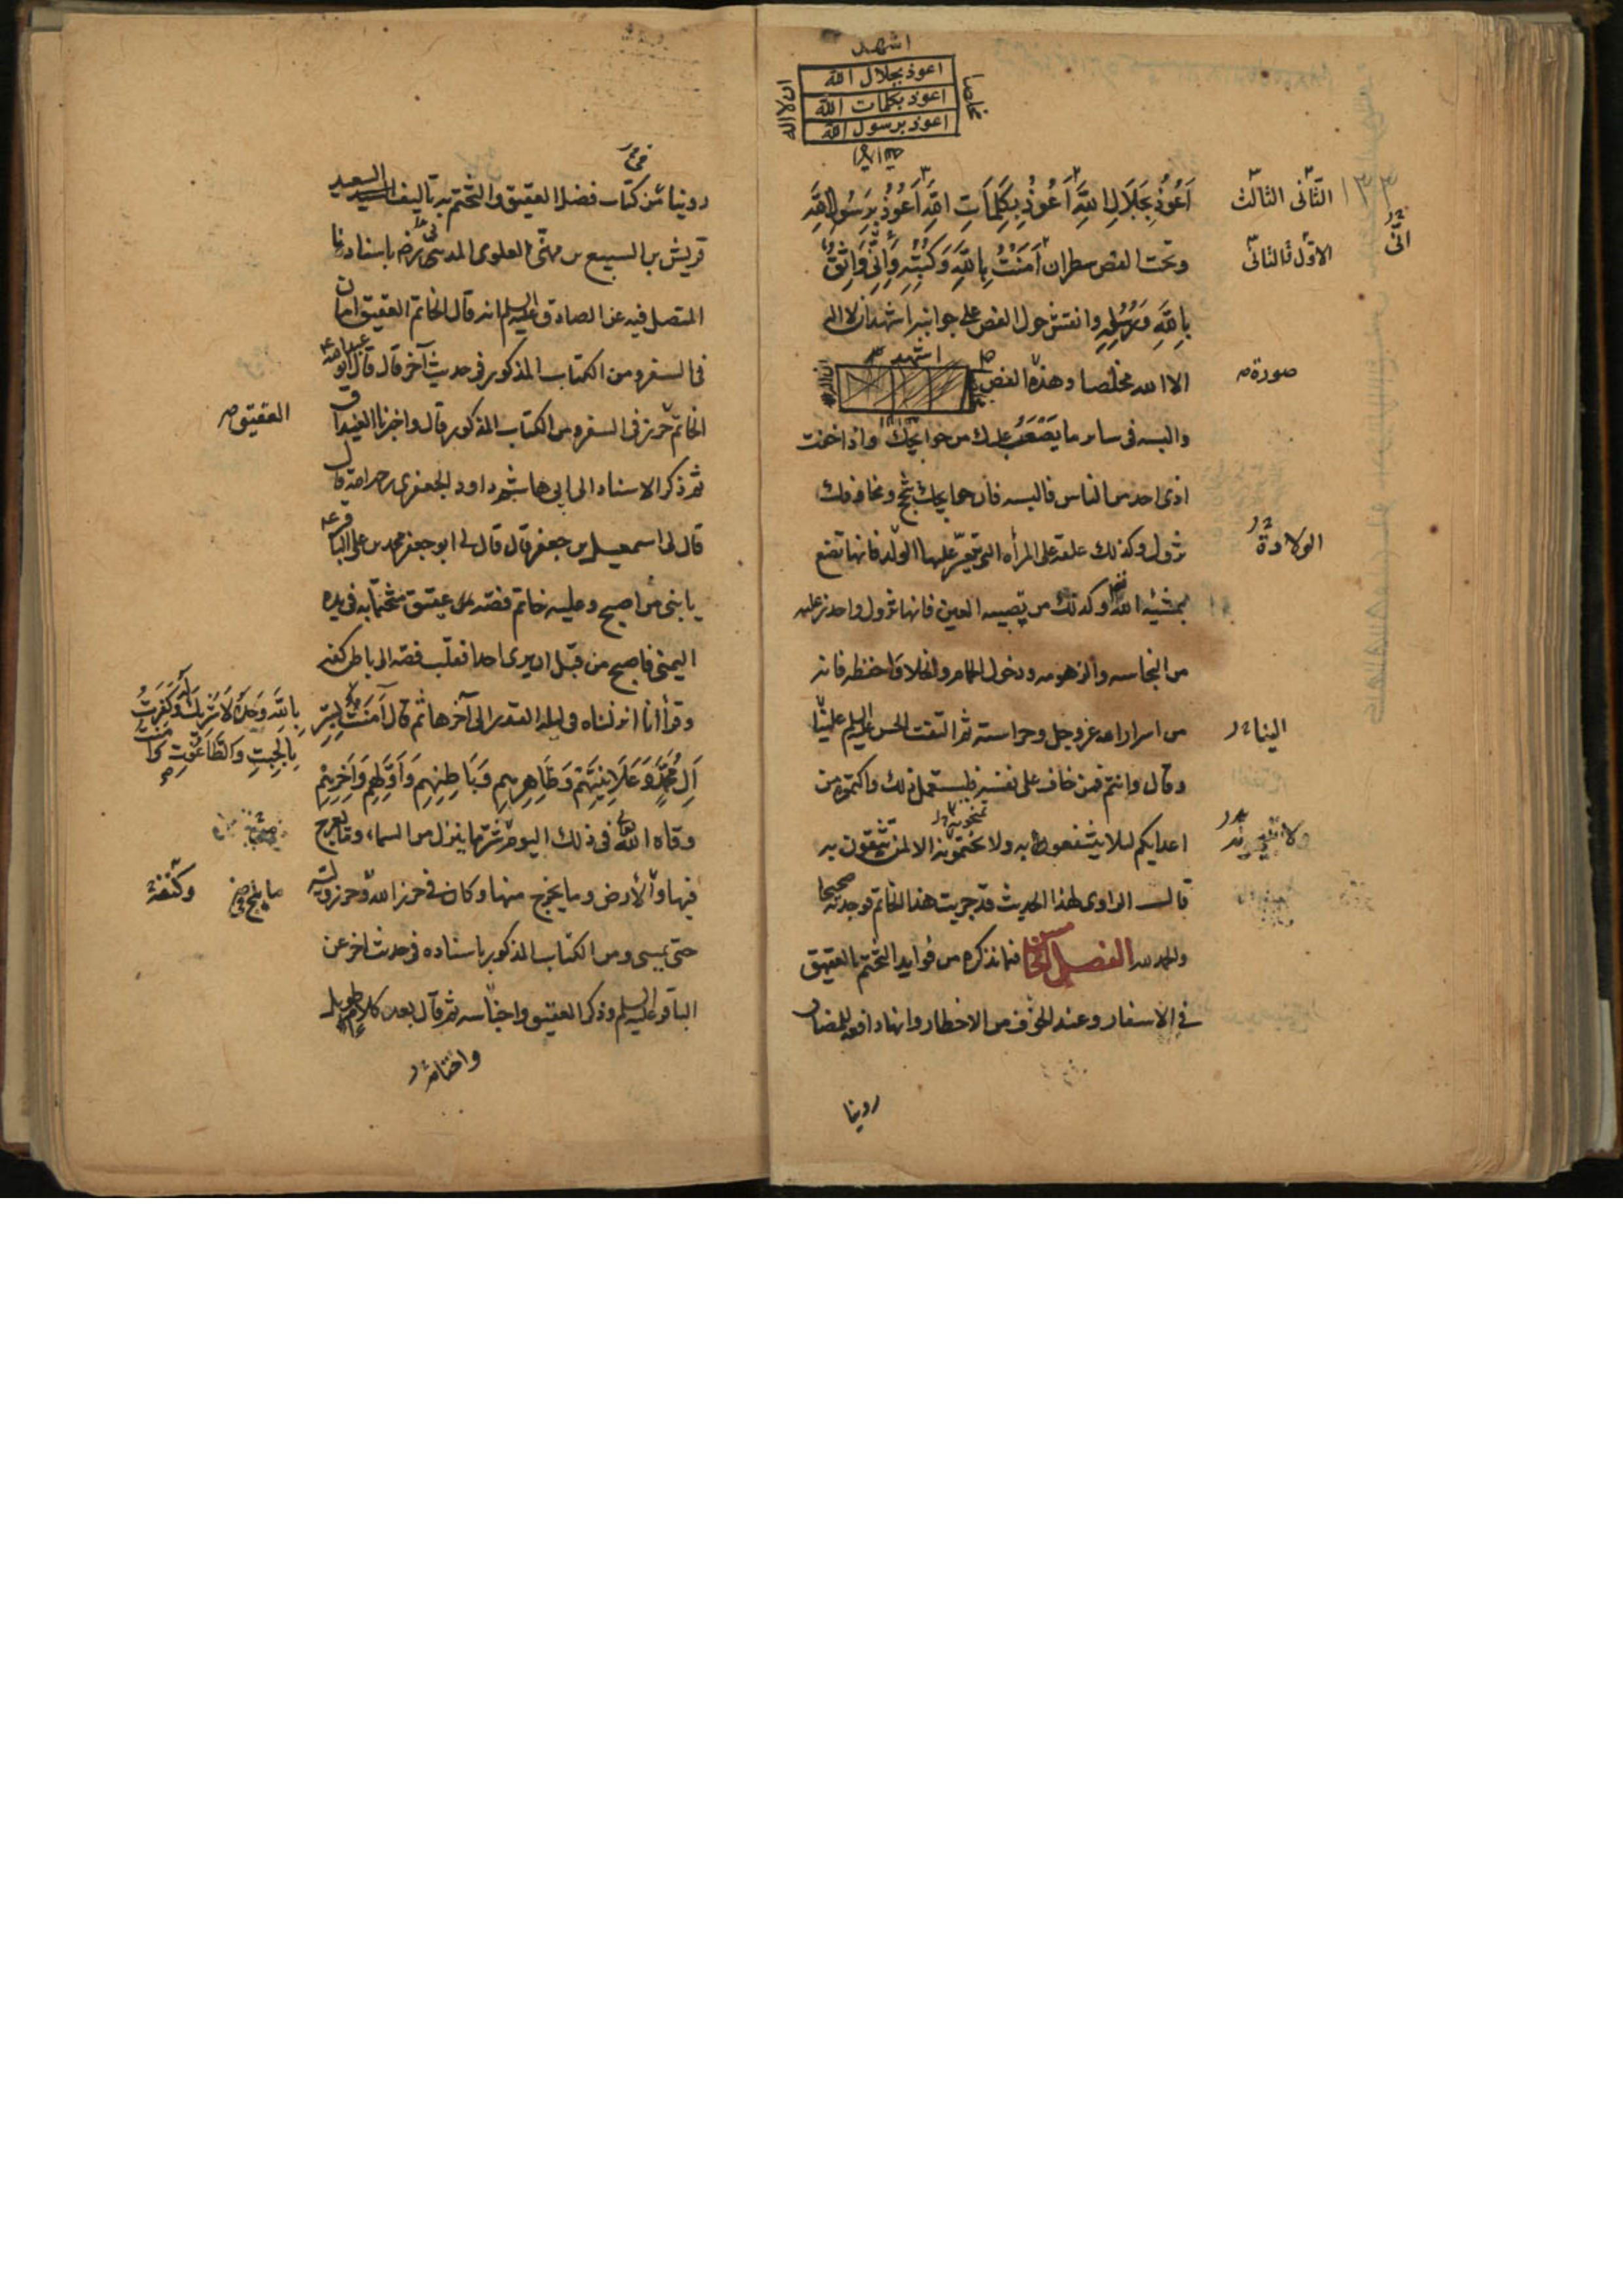 اشهد
اعوذ بجلال الله
اعوذ بكلمات الله
اعوذ برسول الله
ان لا اله
الا الله
مخلصا
اَعُوذُ بِجَلَالِ اللهِ اَعُوذُ بِكَلِمَاتِ اللهِ اَعُوذُ بِرَسُولِ اللهِ
الثانى الثالث
وتحت الفص سطران اَمَنْتُ بِاللهِ وَكُتُبِهِ وَاِنِّى وَاثِقٌ
الاول الثانى
انى
بِاللهِ وَرُسُلِهِ وانقش حول الفص على جوانبه اشهد ان لا اله
الا الله مخلصا وهذه الفص
صورة
اشهد
والبسه فى ساير ما يَصْعَبُ عليك من حوايجك واذا خفت
اذى احد من الناس فالبسه فان حوايجك تنجح ومخاوفك
تزول وكذلك علقه على المرأه التى يتعسر عليها الولد فانها تضع
الولادة
بمشيه الله وكذلك من تصيبه العين فانها تزول واحذر عليه
من النجاسه والزهومه ودخول الحمام والخلا واحفظه فانه
من اسرار الله عز وجل وحراسته ثم التفت الحسن عليه السلم علينا
الينا
وقال وانتم فمن خاف على نفسه فليستعمل ذلك واكتموه من
اعدايكم لئلا ينتفعوا به ولا تبيحونه الا لمن تثقون به
قال الراوى لهذا الحديث قد جربت هذا الخاتم فوجدته صحيحا
والحمد لله الفصل الخامس فيما نذكره من فوايد التختم بالعقيق
فى الاسفار وعند الخوف من الاخطار وانها دافعه للمضار
روينا
روينا من كتاب فضل العقيق والتختم به تاليف السيد السعيد
قريش بن السبيع بن مهنى العلوى المدنى رض باسنادنا
المتصل فيه عن الصادق عليه السلم انه قال الخاتم العقيق امان
فى السفر ومن الكتاب المذكور فى حديث آخر قال قال ابو عبد الله
الخاتم حرز فى السفر ومن الكتاب المذكور قال واخبرنا
العقيق
ثم ذكر الاسناد الى ابى هاشم داود الجعفرى رحمه الله قال
قال لى اسمعيل بن جعفر قال قال لى ابو جعفر محمد بن على الباقر
يا بنى من اصبح وعليه خاتم فصه من عقيق متختما به فى يده
اليمنى فاصبح من قبل ان يرى احدا فقلب فصه الى باطن كفه
وقرأ انا انزلناه فى ليله القدر الى آخرها ثم قال آمَنْتُ بِسِرِّ
بِاللهِ وَحْدَهُ لَا شَرِيكَ لَهُ وَكَفَرْتُ
بِالْجِبْتِ وَالطَّاغُوتِ وَآمَنْتُ
آلِ مُحَمَّدٍ وَعَلَانِيَتِهِمْ وَظَاهِرِهِمْ وَبَاطِنِهِمْ وَاَوَّلِهِمْ وَآخِرِهِمْ
وقاه الله فى ذلك اليوم شر ما ينزل من السماء وما يعرج
فيها وما يلج فى الارض وما يخرج منها وكان فى حرز الله وحرز رسوله
وكنفه
حتى يمسى ومن الكتاب المذكور باسناده فى حديث اخر عن
الباقر عليه السلم وذكر العقيق واجناسه ثم قال بعد كلام طويل